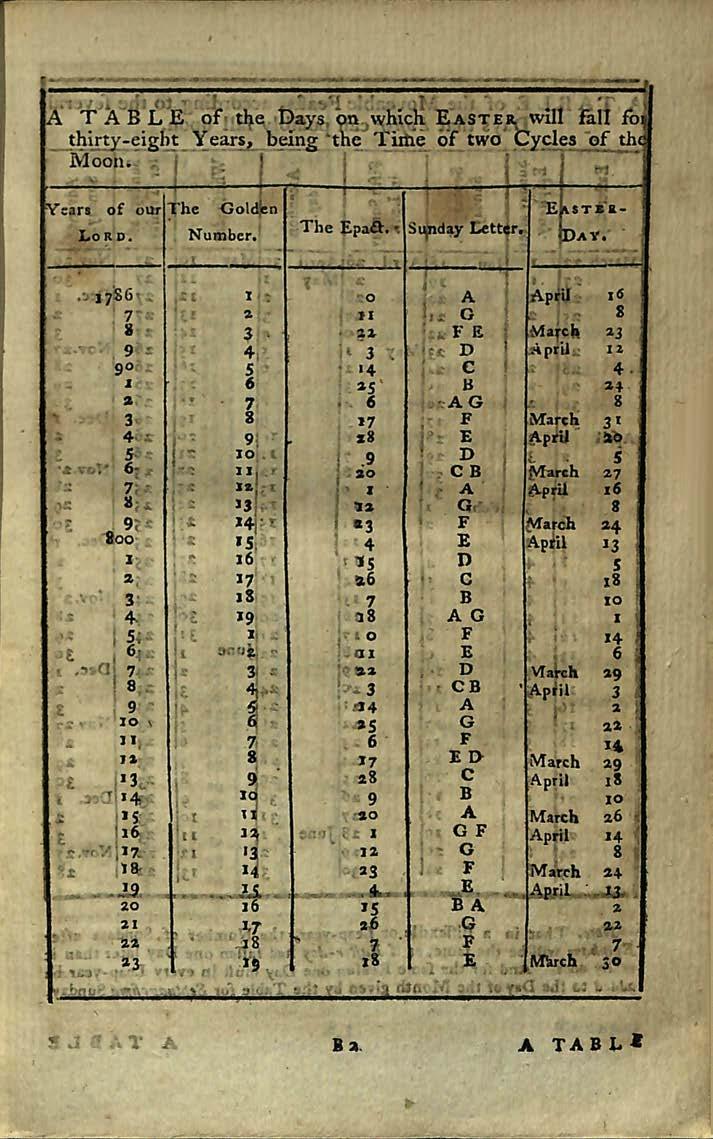 A TABLE of the Days on which EASTER will fall for
thirty-eight Years, being the Time of two Cycles of the
Moon.
Years of our LORD. The Golden Number. The Epact. Sunday Letter. EASTER-DAY.
1786 1 0 A April 16
7 2 11 G 8
8 3 22 F E March 23
9 4 3 D April 12
90 5 14 C 4
1 6 25 B 24
2 7 6 A G 8
3 8 17 F March 31
4 9 28 E April 20
5 10 9 D 5
6 11 20 C B March 27
7 12 1 A April 16
8 13 12 G 8
9 14 23 F March 24
800 15 4 E April 13
1 16 15 D 5
2 17 26 C 18
3 18 7 B 10
4 19 18 A G 1
5 1 0 F 14
6 2 11 E 6
7 3 22 D March 29
8 4 3 C B April 3
9 5 14 A 2
10 6 25 G 22
11 7 6 F 14
12 8 17 E D March 29
13 9 28 C April 18
14 10 9 B 10
15 11 20 A March 26
16 12 1 G F April 14
17 13 12 G 8
18 14 23 F March 24
19 15 4 E April 13
20 16 15 B A 2
21 17 26 G 22
22 18 7 F 7
23 19 18 E March 30
B 2 A TABLE